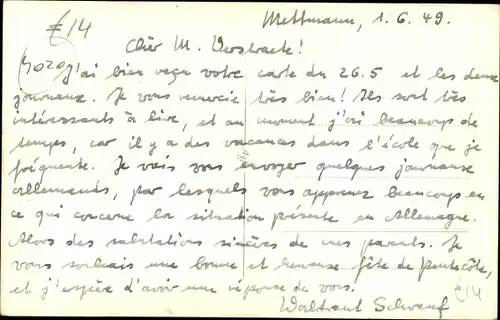 €14
Mettmann, 1. 6. 49.
Cher M. Verstraete!
3020
J'ai bien reçu votre carte du 26.5 et les deux
journaux. Je vous remercie très bien! Ils sont très
intéressants à lire, et au moment j'ai beaucoup de
temps, car il y a des vacances dans l'école que je
fréquente. Je vais vous envoyer quelques journaux
allemands, par lesquels vous apprenez beaucoup en
ce qui concerne la situation présente en Allemagne.
Alors des salutations sincères de mes parents. Je
vous souhais une bonne et heureuse fête de Pentecôte,
et j'espère d'avoir une réponse de vous.
€14
Waltraut